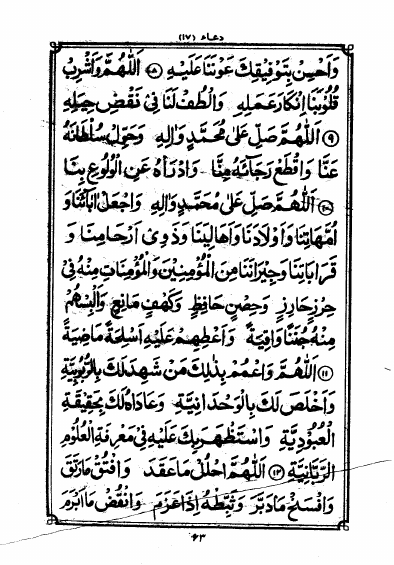 دعاء (١٧)
وَاَحْسِنْ بِتَوْفِيقِكَ عَوْنَنَا عَلَيْهِ (٨) اَللّٰهُمَّ وَاَشْرِبْ
قُلُوْبَنَا اِنْكَارَ عَمَلِهِ وَالْطُفْ لَنَا فِىْ نَقْضِ حِيَلِهِ
(٩) اَللّٰهُمَّ صَلِّ عَلٰى مُحَمَّدٍ وَاٰلِهِ وَحَوِّلْ سُلْطَانَهُ
عَنَّا وَاقْطَعْ رَجَائَهُ مِنَّا وَادْرَاْهُ عَنِ الْوُلُوعِ بِنَا
(١٠) اَللّٰهُمَّ صَلِّ عَلٰى مُحَمَّدٍ وَاٰلِهِ وَاجْعَلْ اٰبَائَنَا وَ
اُمَّهَاتِنَا وَاَوْلَادَنَا وَاَهَالِيَنَا وَذَوِىْ اَرْحَامِنَا وَ
قَرَابَاتِنَا وَجِيْرَانَنَا مِنَ الْمُؤْمِنِيْنَ وَالْمُؤْمِنَاتِ مِنْهُ فِىْ
حِرْزٍ حَارِزٍ وَحِصْنٍ حَافِظٍ وَكَهْفٍ مَانِعٍ وَاَلْبِسْهُمْ
مِنْهُ جُنَنًا وَاقِيَةً وَاَعْطِهِمْ عَلَيْهِ اَسْلِحَةً مَاضِيَةً
(١١) اَللّٰهُمَّ وَاعْمُمْ بِذٰلِكَ مَنْ شَهِدَ لَكَ بِالرُّبُوْبِيَّةِ
وَاَخْلَصَ لَكَ بِالْوَحْدَانِيَّةِ وَعَادَاهُ لَكَ بِحَقِيْقَةِ
الْعُبُوْدِيَّةِ وَاسْتَظْهَرَ بِكَ عَلَيْهِ فِىْ مَعْرِفَةِ الْعُلُوْمِ
الرَّبَّانِيَّةِ (١٢) اَللّٰهُمَّ احْلُلْ مَا عَقَدَ وَافْتُقْ مَا رَتَقَ
وَافْسَخْ مَا دَبَّرَ وَثَبِّطْهُ اِذَا عَزَمَ وَانْقُضْ مَا اَبْرَمَ
٩٣